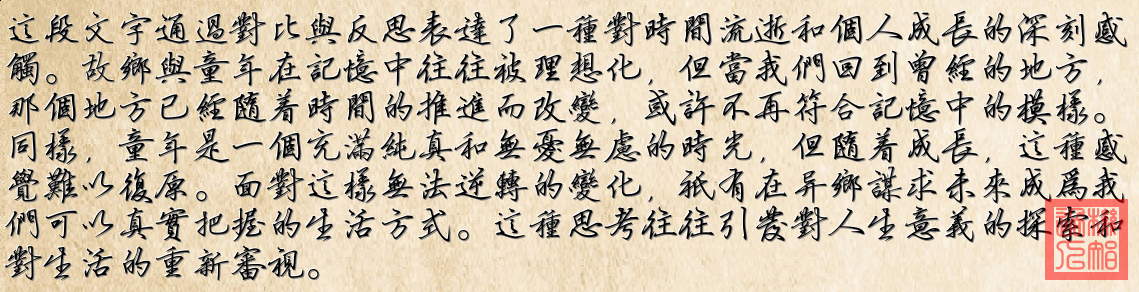 這段文字通過對比與反思表達了一種對時間流逝和個人成長的深刻感
觸。故鄉與童年在記憶中往往被理想化，但當我們回到曾經的地方，
那個地方已經隨着時間的推進而改變，或許不再符合記憶中的模樣。
同樣，童年是一個充滿純真和無憂無慮的時光，但隨着成長，這種感
覺難以復原。面對這樣無法逆轉的變化，祇有在异鄉謀求未來成爲我
們可以真實把握的生活方式。這種思考往往引發對人生意義的探索和
對生活的重新審視。